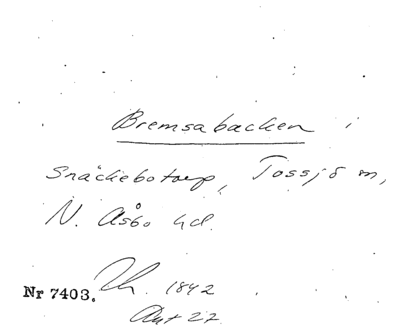 Bremsabacken i
Snäckebotorp, Tossjö m,
N. Åsbo hd.
Nr 7403. Lh. 1842
Ant 27